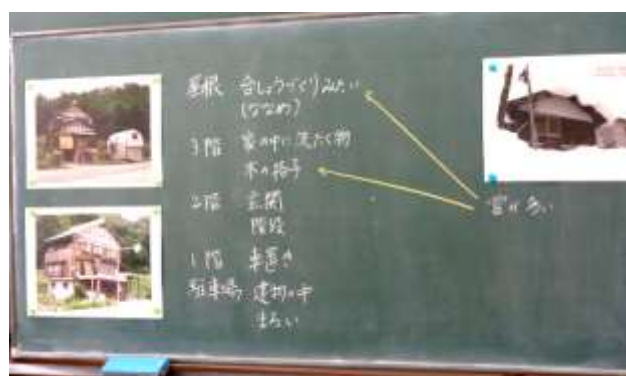 屋根 合しょうづくりみたい
(ななめ)
3階 家の中に洗たく物
木の格子
2階 玄関
階段
1階 車置き
駐車場 建物の中
まるい
雪が多い